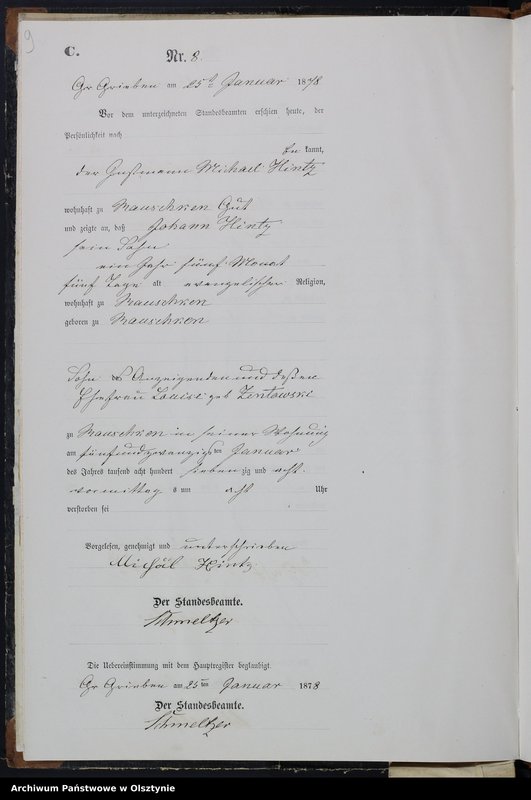 9
C.
Nr. 8.
Gr Grieben am 25t Januar 1878
Vor dem unterzeichneten Standesbeamten erschien heute, der
Persönlichkeit nach
be kannt,
der Instmann Michael Hintz
wohnhaft zu Rauschken Gut
und zeigte an, daß Johann Hintz
sein Sohn
ein Jahr fünf Monat
fünf Tage alt evangelischer Religion,
wohnhaft zu Rauschken
geboren zu Rauschken
Sohn des Anzeigenden und deßen
Ehefrau Louise geb Zentowski
zu Rauschken in seiner Wohnung
am fünfundzwanzigsten Januar
des Jahres tausend acht hundert sieben zig und acht
vormittag s um acht Uhr
verstorben sei
Vorgelesen, genehmigt und unterschrieben
Michäl Hintz
Der Standesbeamte.
Schmeltzer
Die Uebereinstimmung mit dem Hauptregister beglaubigt
Gr Grieben am 25ten Januar 1878
Der Standesbeamte.
Schmeltzer
Archiwum Państwowe w Olsztynie